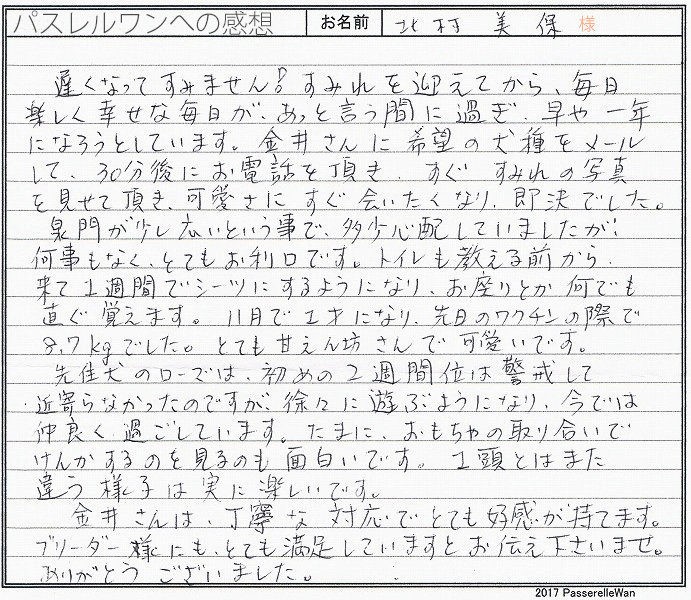 パスレルワンへの感想 お名前 北村 美保 様
遅くなってすみません! すみれを迎えてから、毎日
楽しく幸せな毎日が、あっと言う間に過ぎ、早や一年
になろうとしています。金井さんに希望の犬種をメール
して、30分後にお電話を頂き、すぐすみれの写真
を見せて頂き、可愛さにすぐ会いたくなり、即決でした。
泉門が少し広いという事で、多少心配していましたが、
何事もなく、とてもお利口です。トイレも教える前から、
来て1週間でシーツにするようになり、お座りとか何でも
直ぐ覚えます。11月で1才になり、先日のワクチンの際で
8.7kgでした。とても甘えん坊さんで可愛いです。
先住犬のローズでは、初めの2週間位は警戒して
近寄らなかったのですが、徐々に遊ぶようになり、今では
仲良く過ごしています。たまに、おもちゃの取り合いで
けんかするのを見るのも面白いです。1頭とはまた
違う様子は実に楽しいです。
金井さんは、丁寧な対応でとても好感が持てます。
ブリーダー様にも、とても満足していますとお伝え下さいませ。
ありがとうございました。
2017 PasserelleWan